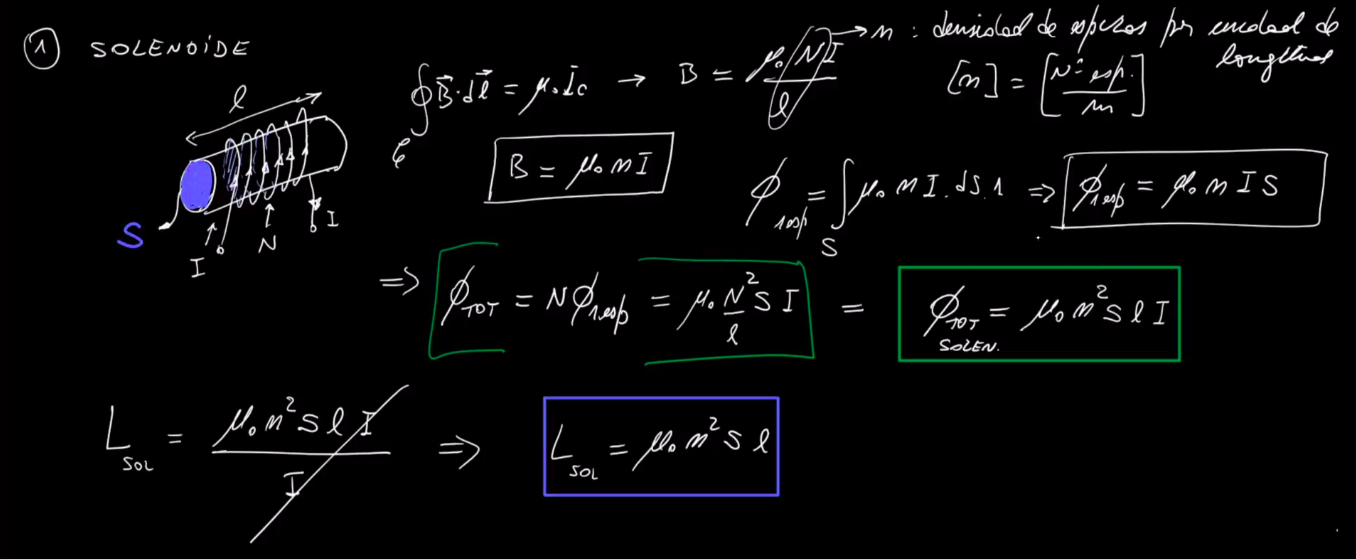 ① SOLENOIDE
∮_C B⃗·dl⃗ = μ₀Ic → B = μ₀NI/l → n : densidad de espiras por unidad de longitud
[n] = [Nº esp./m]
l
S
I
N
I
B = μ₀nI
ϕ_1esp = ∫_S μ₀nI.dS.1 => ϕ_1esp = μ₀nIS
=> ϕ_TOT = Nϕ_1esp = μ₀ N²/l S I = ϕ_TOT SOLEN. = μ₀n²SlI
L_SOL = μ₀n²SlI/I => L_SOL = μ₀n²Sl